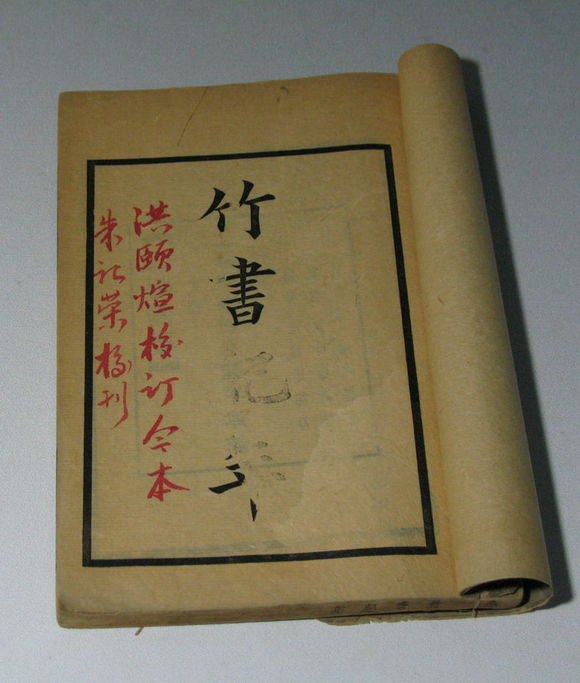 竹書紀年
洪頤煊校订今本
朱记荣校刊